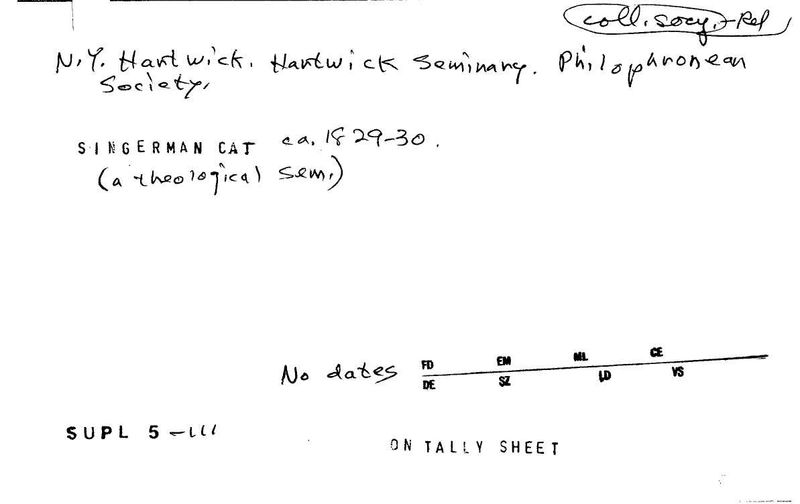 coll. socy. - Rel
N.Y. Hartwick. Hartwick Seminary. Philophronean
Society.
SINGERMAN CAT ca. 1829-30.
(a theological sem.)
No dates FD EM ML CE
DE SZ LD VS
SUPL 5 -
ON TALLY SHEET